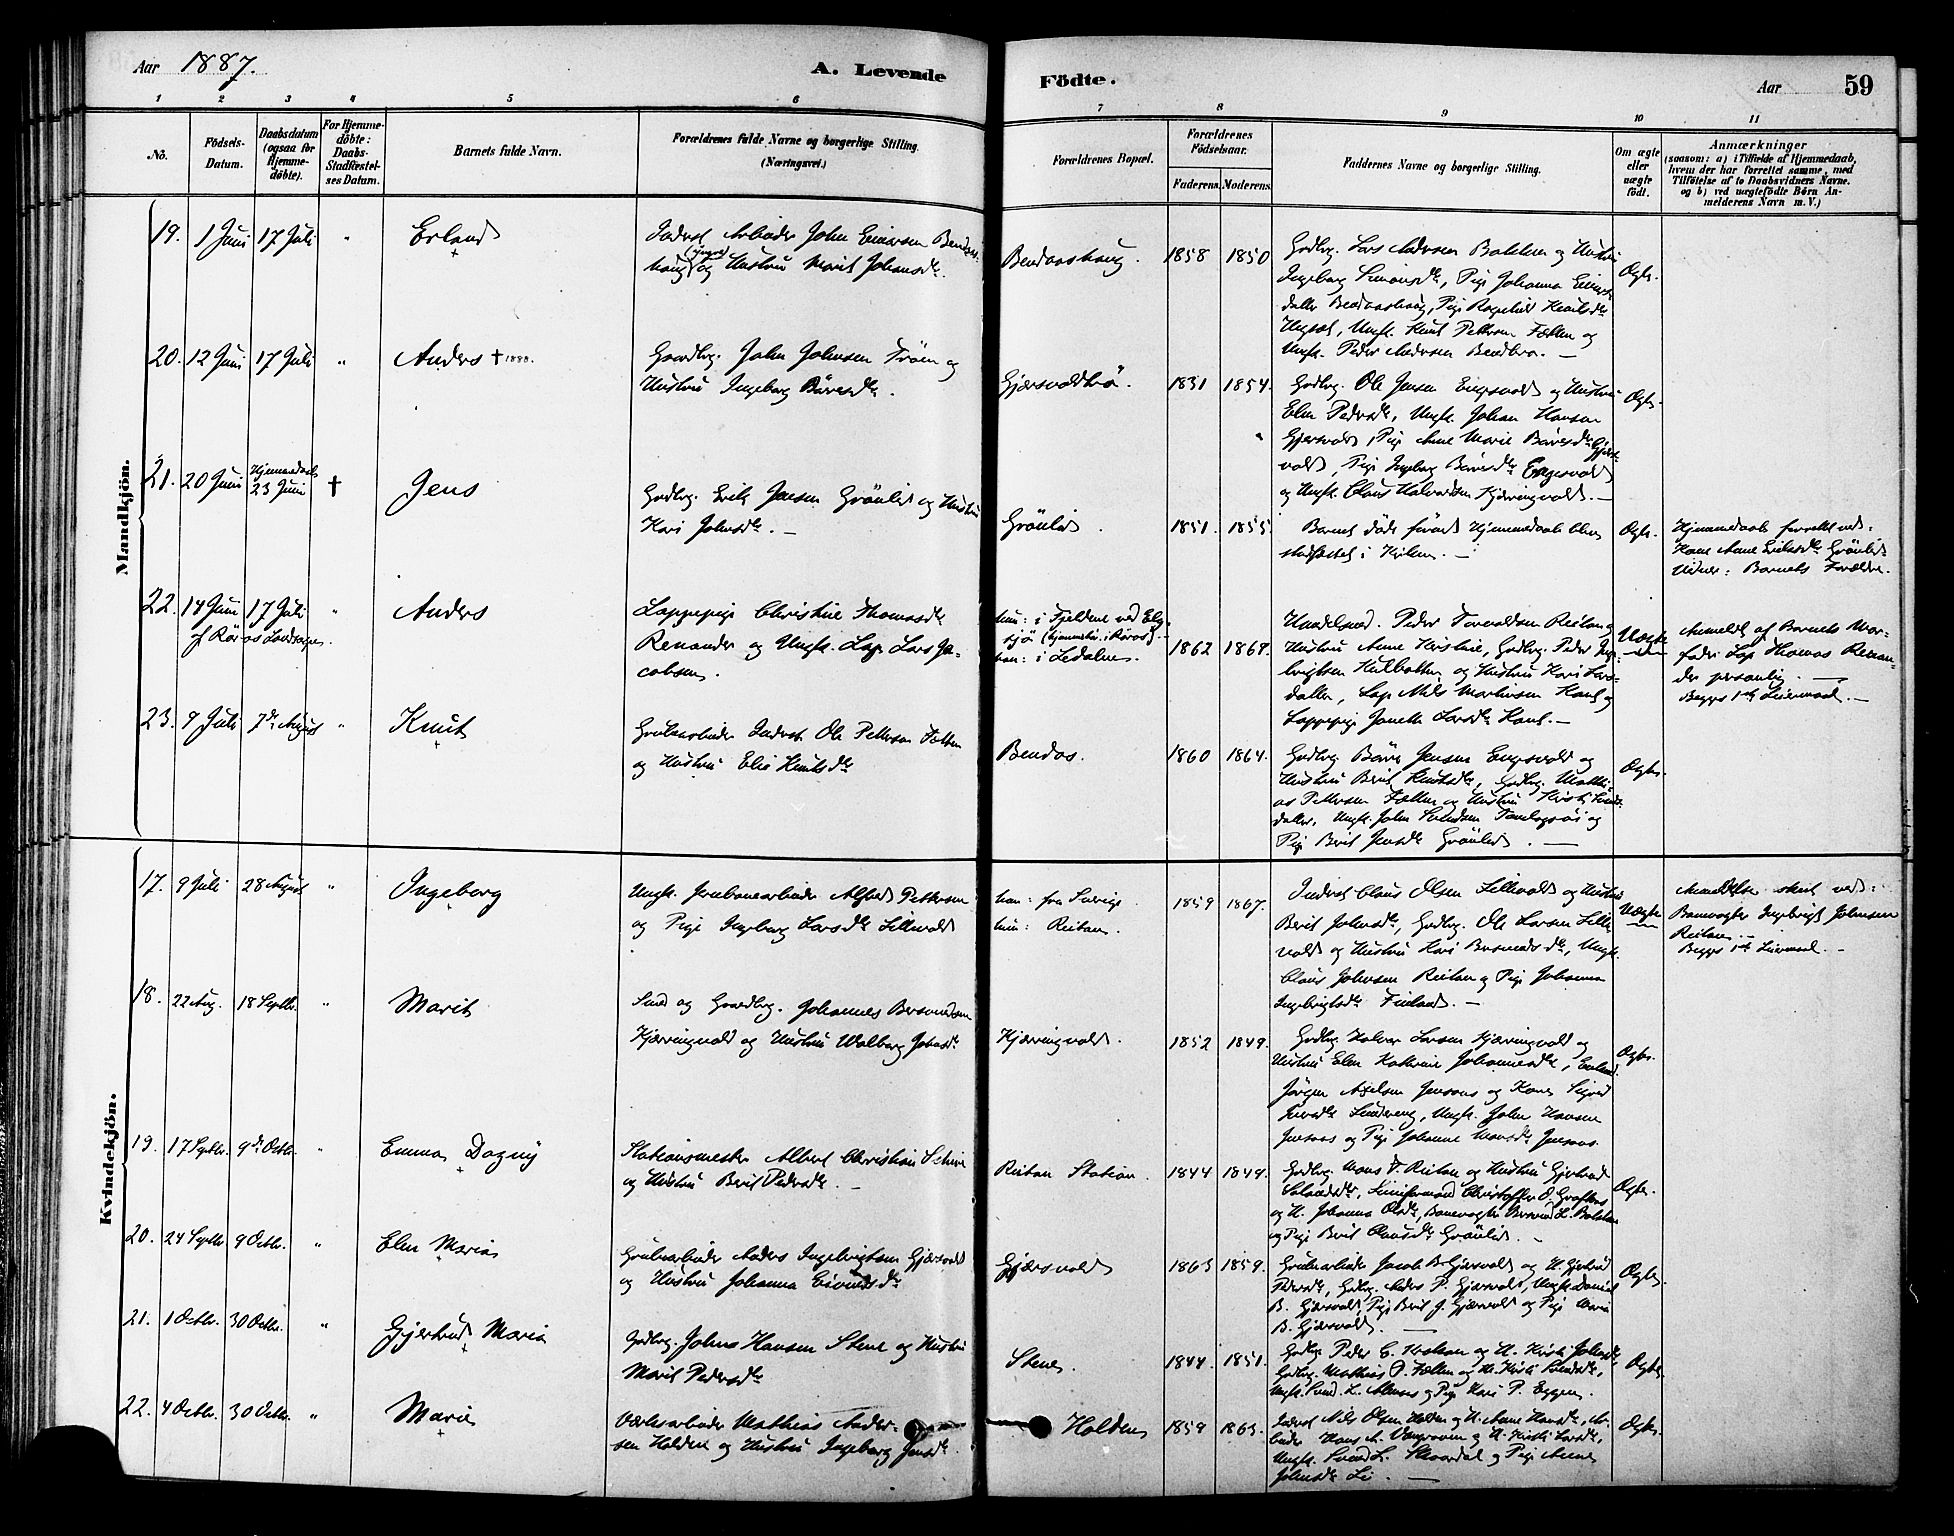 Aar 1887.
A. Levende
Födte.
Aar
59
1 2 3 4 5 6 7 8 9 10 11
No.
Födsels-Datum.
Daabsdatum (ogsaa for Hjemme-döbte).
For Hjemme-döbte: Daabs-Stadfæstel-ses Datum.
Barnets fulde Navn.
Forældrenes fulde Navne og borgerlige Stilling. (Næringsvei.)
Forældrenes Bopæl.
Forældrenes Födselsaar.
Faderens. Moderens.
Faddernes Navne og borgerlige Stilling.
Om ægte eller uægte födt.
Anmærkninger
(saasom: a) i Tilfælde af Hjemmedaab,
hvem der har forrettet samme, med
Tilföielse af to Daabsvidners Navne.
og b) ved uægtefödte Börn An-
melderens Navn m. V.)
Mandkjön.
19. 1 Juni 17 Juli " Erland
Inderst Arbeider John Einarsen Bendaas-
haug og Hustru Marit Johansdtr.
Bendaashaug. 1858 1850
Gbrg. Lars Andersen Bolden og Hustru
Ingeborg Simonsdtr, Pige Johanna
datter Bendaashaug, Pige Ragnhild Knutsdtr
Ungk. Knut Pettersen Fætten og
Ungk. Peder Andersen Bendbro. —
Ægte.
20. 12 Juni 17 Juli " Anders † 1888.
Gaardbrg. John Johnsen Trøen og
Hustru Ingeborg Børresdtr.
Gjærsvoldtrø. 1831 1854.
Gbrg. Ole Jensen Engesvold og Hustru
Elen Pedersdtr, Ungk. Johan Hansen
Gjærsvold, Pige Anne Marie Børresdtr Gjærs-
vold, Pige Ingeborg Børresdtr Engesvold
og Ungk. Claus Halvardsen Kjæringvold. —
Ægte.
21. 20 Juni Hjemmedaab 23 Juni † Jens
Gbrg. Erik Jensen Grönlid og Hustru
Kari Johnsdtr. —
Grönlid. 1851. 1855.
Barnet døde førend Hjemmedaab blev
stadfæstet i Kirken. —
Ægte.
Hjemmedaab forrettet ved:
Kone Anne Eriksdtr Grönlid
Vidner: Barnets Forældre.
22. 14 Juni 17 Juli " Anders
af Røros Landsogn.
Lappepige Christine Thomasdtr
Renander og Ungk. Lap Lars Ja-
cobsen.
hun: i Fjeldene ved Elg-
sjø (hjemmeh. i Røros).
han: i Ledalen. 1862 1867.
Handelsmd. Peder Torvaldsen Reitan og
Hustru Anne Kirstine, Gbrg. Peder Inge-
brigtsen Hulbatten og Hustru Kari Lars-
datter, Lap Nils Mortensen Kant og
Lappepige Janette Larsdtr Kant. —
Uægte
Anmeldt af Barnets Mor-
fader Lap Thomas Renan-
der personlig. —
Begges 1ste Leiermaal. —
23. 9 Juli 7de August " Knut
Grubearbeider Inderst. Ole Pettersen Fætten
og Hustru Elie Knutsdtr
Bendos. 1860 1864.
Gbrg. Børre Jensen Engesvold og
Hustru Berit Knutsdtr, Gbrg. Mathi-
as Pettersen Fætten og Hustru Kirsti
datter, Ungk. John Svendsen og
Pige Berit Jensdtr Grönlid. —
Ægte.
Kvindekjön.
17. 9 Juli 28 August " Ingeborg
Ungk. Jernbanearbeider Alfred Pettersen
og Pige Ingeborg Larsdtr Lillevold
han: fra Sverige
hun: Reitan. 1859 1867.
Inderst Claus Olsen Lillevold og Hustru
Berit Johnsdtr, Gbrg. Ole Larsen Lille-
vold og Hustru Kari Bersvendsdtr, Ungk.
Claus Johnsen Reitan og Pige Johanna
Ingebrigtsdtr Finland. —
Uægte
Anmeldelse skeet ved:
Banevogter Ingebrigt Johnsen
Reitan. —
Begges 1ste Leiermaal. —
18. 22 Aug. 18 Septbr. " Marit
Smed og Gaardbrg. Johannes Bersvendsen
Kjæringvold og Hustru Walborg Johnsdtr
Kjærringvold. 1852 1849.
Gbrg. Halvor Larsen Kjæringvold og
Hustru Elen Kathrine Johannesdtr,
Jörgen Axelsen Jensaas og Kone Sigrid
Ungk. John Hansen
Jensaas og Pige Johanne Monsdtr Jensaas.
Ægte.
19. 17 Septbr. 9de Octbr. " Emma Dagny
Stationsmester Albert Christian Schive
og Hustru Berit Pedersdtr. —
Reitan Station. 1844 1849.
Gbrg. Mons P. Reitan og Hustru Gjertrud
Christoffer O. Graftaas
og H. Johanna Olsdtr, Banevogter Bersvend L. Bolden
og Pige Berit Clausdtr Grönlid. —
Ægte.
20. 24 Septbr. 9 Octbr. " Elen Maria
Grubearbeider Anders Ingebrigtsen Gjærsvold
og Hustru Johanna Eivindsdtr
Gjærsvold 1863 1859.
Grubearbeider Jacob B. Gjersvold og H. Gjertrud
Pedersdtr, Gbrg. Anders P. Gjærsvold, Ungk. Daniel
B. Gjærsvold, Pige Berit J. Gjærsvold og Pige Maria
B. Gjærsvold. —
Ægte.
21. 1 Octbr. 30 Octbr. " Gjertrud Maria
Gbrg. Johns Hansen Stene og Hustru
Marit Pedersdtr
Stene. 1844. 1851.
Gbrg. Peder E. og H. Kirsti Johnsdtr,
Gbrg. Mathias P. Fætten og H. Kirsti Svendsdtr,
Ungk. Svend L. Aunaas og Pige Kari P. Eggen.
Ægte
22. 4 Octbr. 30 Octbr. " Marie
Værksarbeider Mathias Ander-
sen Holden og Hustru Ingeborg Jensdtr.
Holden 1859 1863.
Inderst Nils Olsen Holden og H. Anne Hansdtr, Ar-
beider Hans A. Vongraven og H. Kirsti Larsdtr,
Ungk. Svend L. og Pige Anne
Johnsdtr Li. —
Ægte.